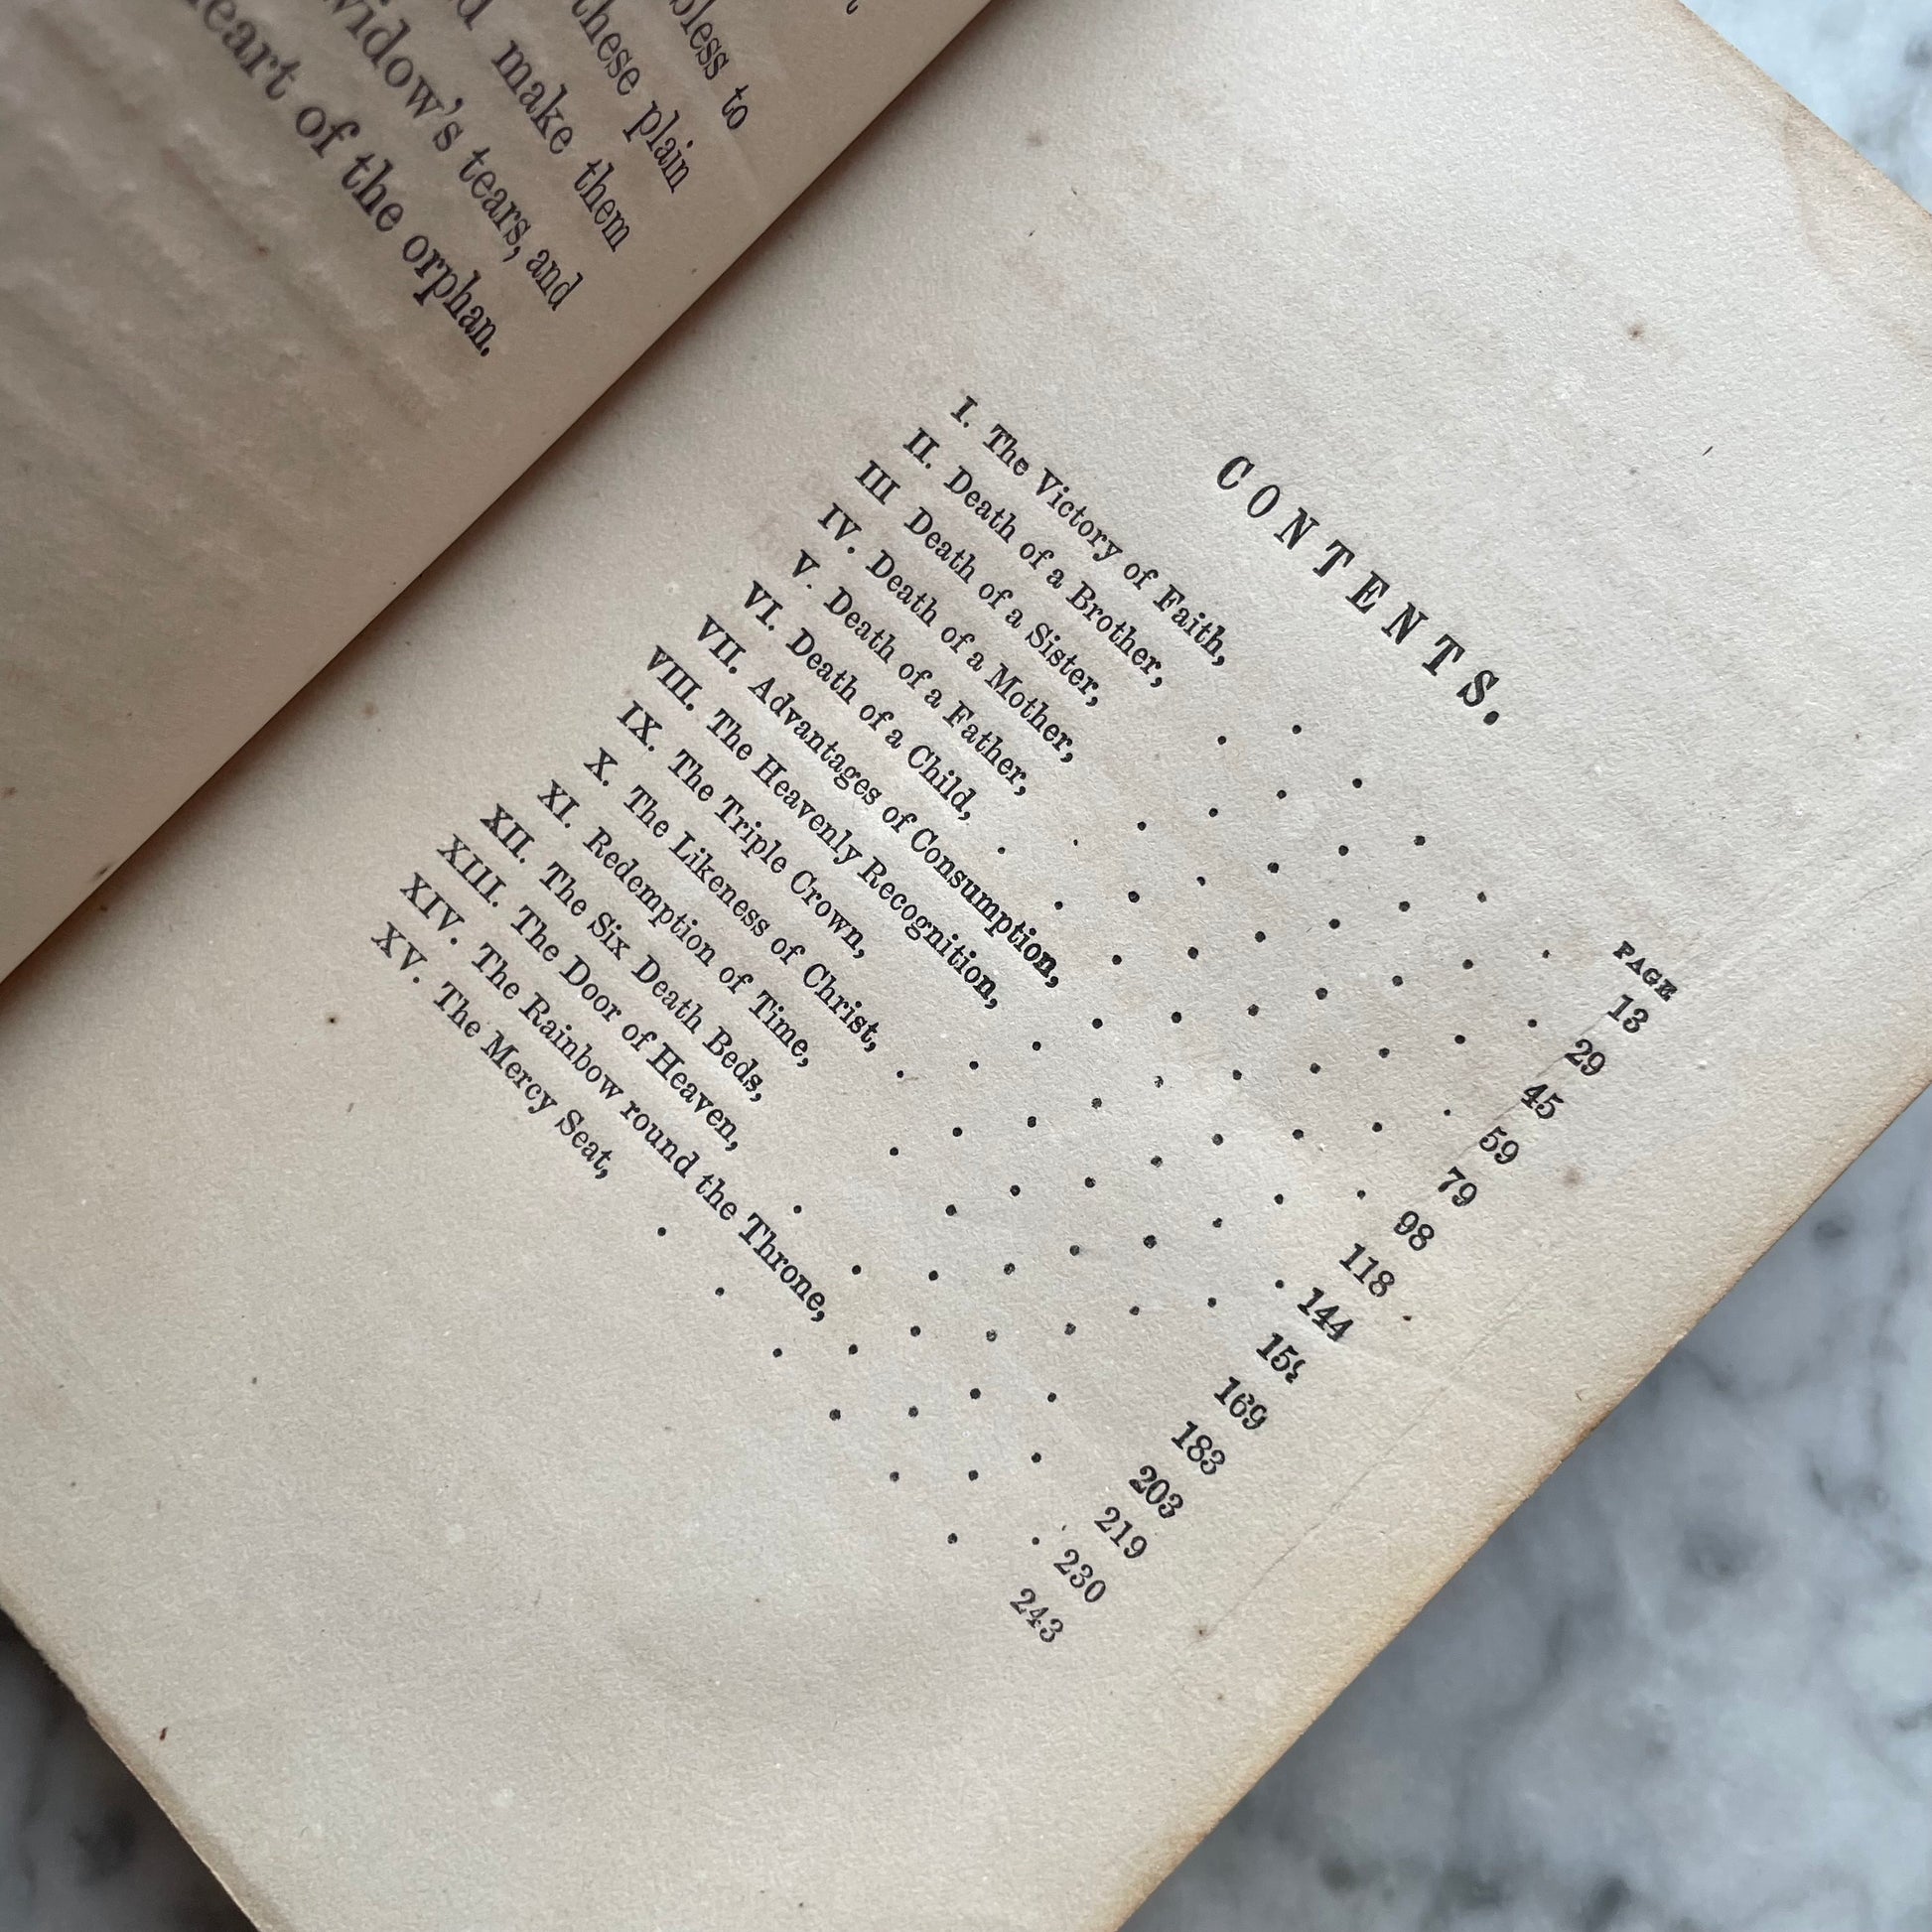 bless to
these plain
make them
widow's tears, and
heart of the orphan.
CONTENTS.
PAGE
I. The Victory of Faith, . . . . . 13
II. Death of a Brother, . . . . . . 29
III Death of a Sister, . . . . . . 45
IV. Death of a Mother, . . . . . . 59
V. Death of a Father, . . . . . . 79
VI. Death of a Child, . . . . . . . 98
VII. Advantages of Consumption, . . . . 118
VIII. The Heavenly Recognition, . . . . . 144
IX. The Triple Crown, . . . . . . 159
X. The Likeness of Christ, . . . . . 169
XI. Redemption of Time, . . . . . . 183
XII. The Six Death Beds, . . . . . . 203
XIII. The Door of Heaven, . . . . . 219
XIV. The Rainbow round the Throne, . . . . 230
XV. The Mercy Seat, . . . . . . 243